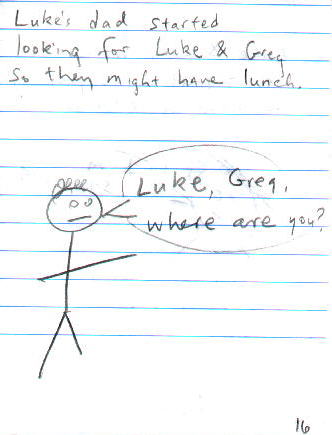 Luke's dad started
looking for Luke & Greg
so they might have lunch.
Luke, Greg,
where are you?
16